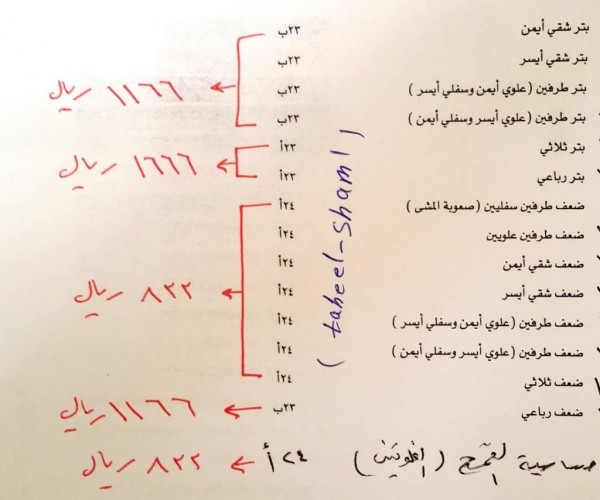 بتر شقي أيمن ٢٣ب
بتر شقي أيسر ٢٣ب
بتر طرفين (علوي أيمن وسفلي أيسر) ٢٣ب
بتر طرفين (علوي أيسر وسفلي أيمن) ٢٣ب
١١٦٦ ريال
بتر ثلاثي ٢٣أ
بتر رباعي ٢٣أ
١٦٦٦ ريال
ضعف طرفين سفليين (صعوبة المشى) ٢٤أ
ضعف طرفين علويين ٢٤أ
ضعف شقي أيمن ٢٤أ
ضعف شقي أيسر ٢٤أ
ضعف طرفين (علوي أيمن وسفلي أيسر) ٢٤أ
ضعف طرفين (علوي أيسر وسفلي أيمن) ٢٤أ
ضعف ثلاثي ٢٤أ
٨٣٣ ريال
ضعف رباعي ٢٣ب ← ١١٦٦ ريال
حساسية القمح (الغلوتين) ٢٤ أ ← ٨٣٣ ريال
(taheel-shaml)